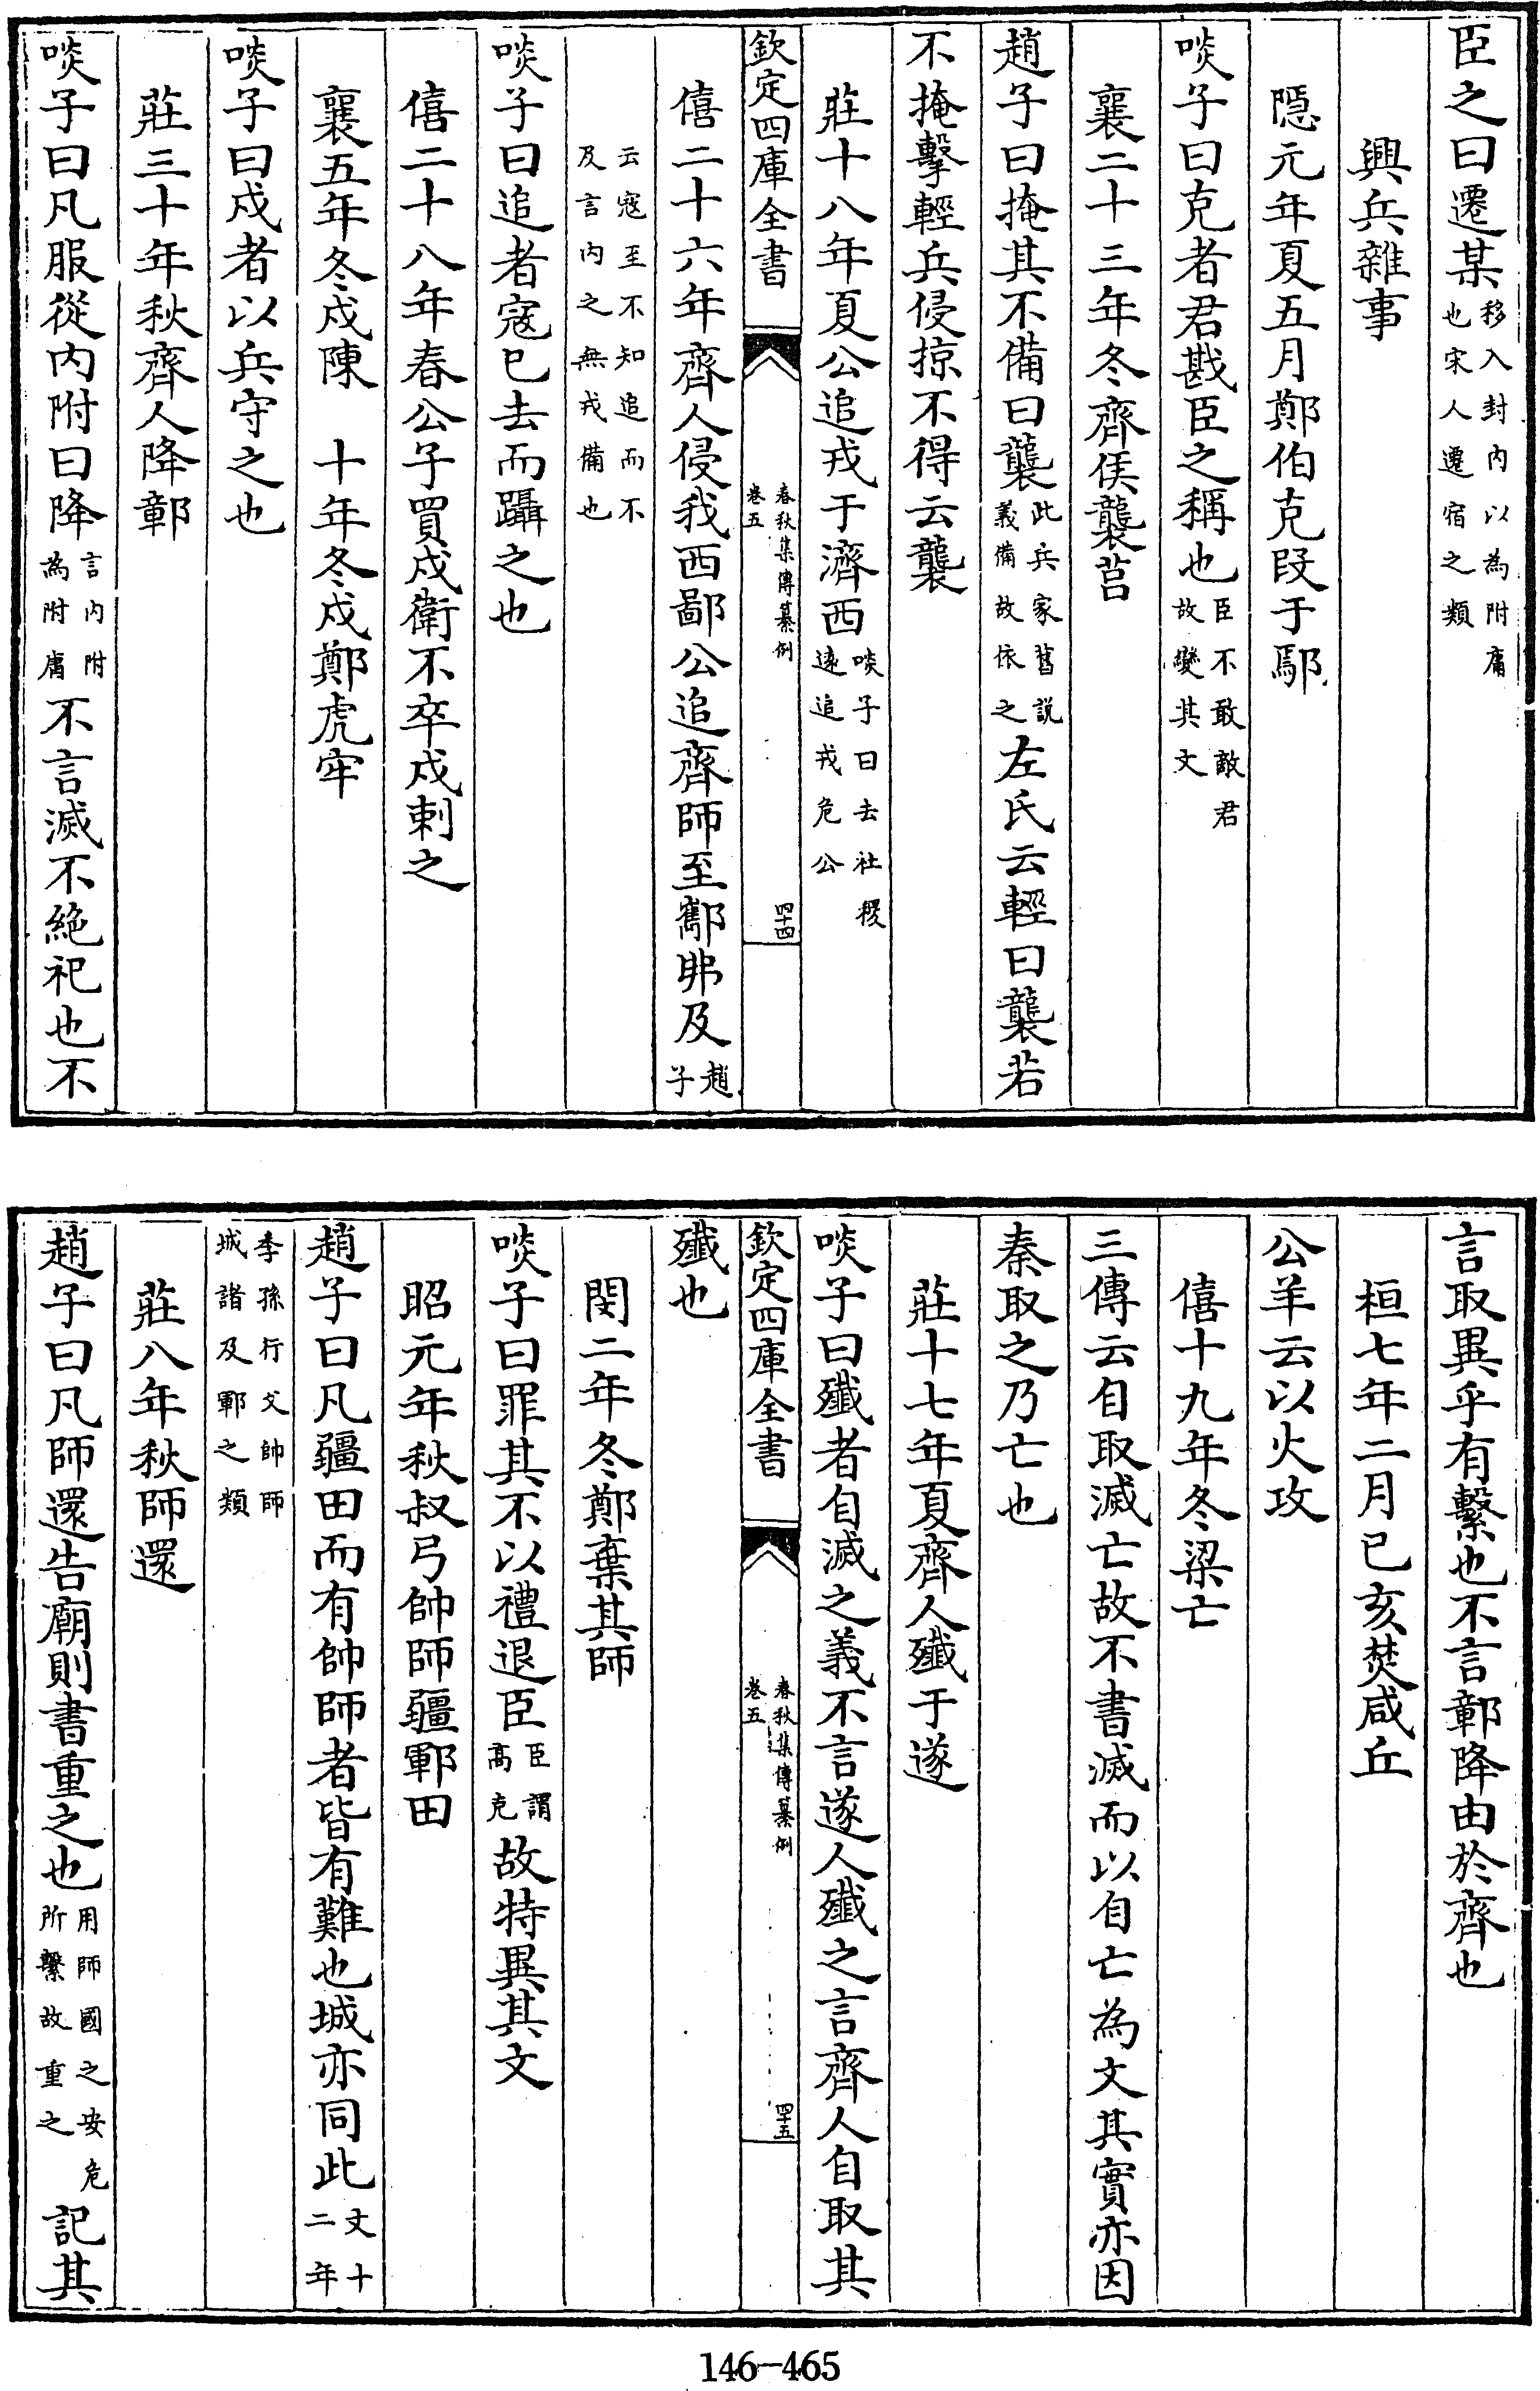 臣之曰遷某移入封内以為附庸也宋人遷宿之類
興兵雜事
隠元年夏五月鄭伯克段于鄢
啖子曰克者君戡臣之稱也臣不敢敵君故變其文
襄二十三年冬齊侯襲莒
趙子曰掩其不備曰襲此兵家舊説義備故依之左氏云輕曰襲若
不掩擊輕兵侵掠不得云襲
莊十八年夏公追戎于濟西啖子曰去社稷遠追戎危公
欽定四庫全書
春秋集傳纂例
卷五
四十四
僖二十六年齊人侵我西鄙公追齊師至酅弗及趙子
云寇至不知追而不及言内之無戎備也
啖子曰追者寇已去而躡之也
僖二十八年春公子買戍衛不卒戍刺之
襄五年冬戍陳　十年冬戍鄭虎牢
啖子曰戍者以兵守之也
莊三十年秋齊人降鄣
啖子曰凡服從内附曰降言内附為附庸不言滅不絶祀也不
言取異乎有繫也不言鄣降由於齊也
桓七年二月已亥焚咸丘
公羊云以火攻
僖十九年冬梁亡
三傳云自取滅亡故不書滅而以自亡為文其實亦因
秦取之乃亡也
莊十七年夏齊人殱于遂
啖子曰殱者自滅之義不言遂人殱之言齊人自取其
欽定四庫全書
春秋集傳纂例
卷五
四十五
殱也
閔二年冬鄭棄其師
啖子曰罪其不以禮退臣臣謂髙克故特異其文
昭元年秋叔弓帥師疆鄆田
趙子曰凡疆田而有帥師者皆有難也城亦同此文十二年
季孫行父帥師城諸及鄆之類
莊八年秋師還
趙子曰凡師還告廟則書重之也用師國之安危所繫故重之記其
146-465